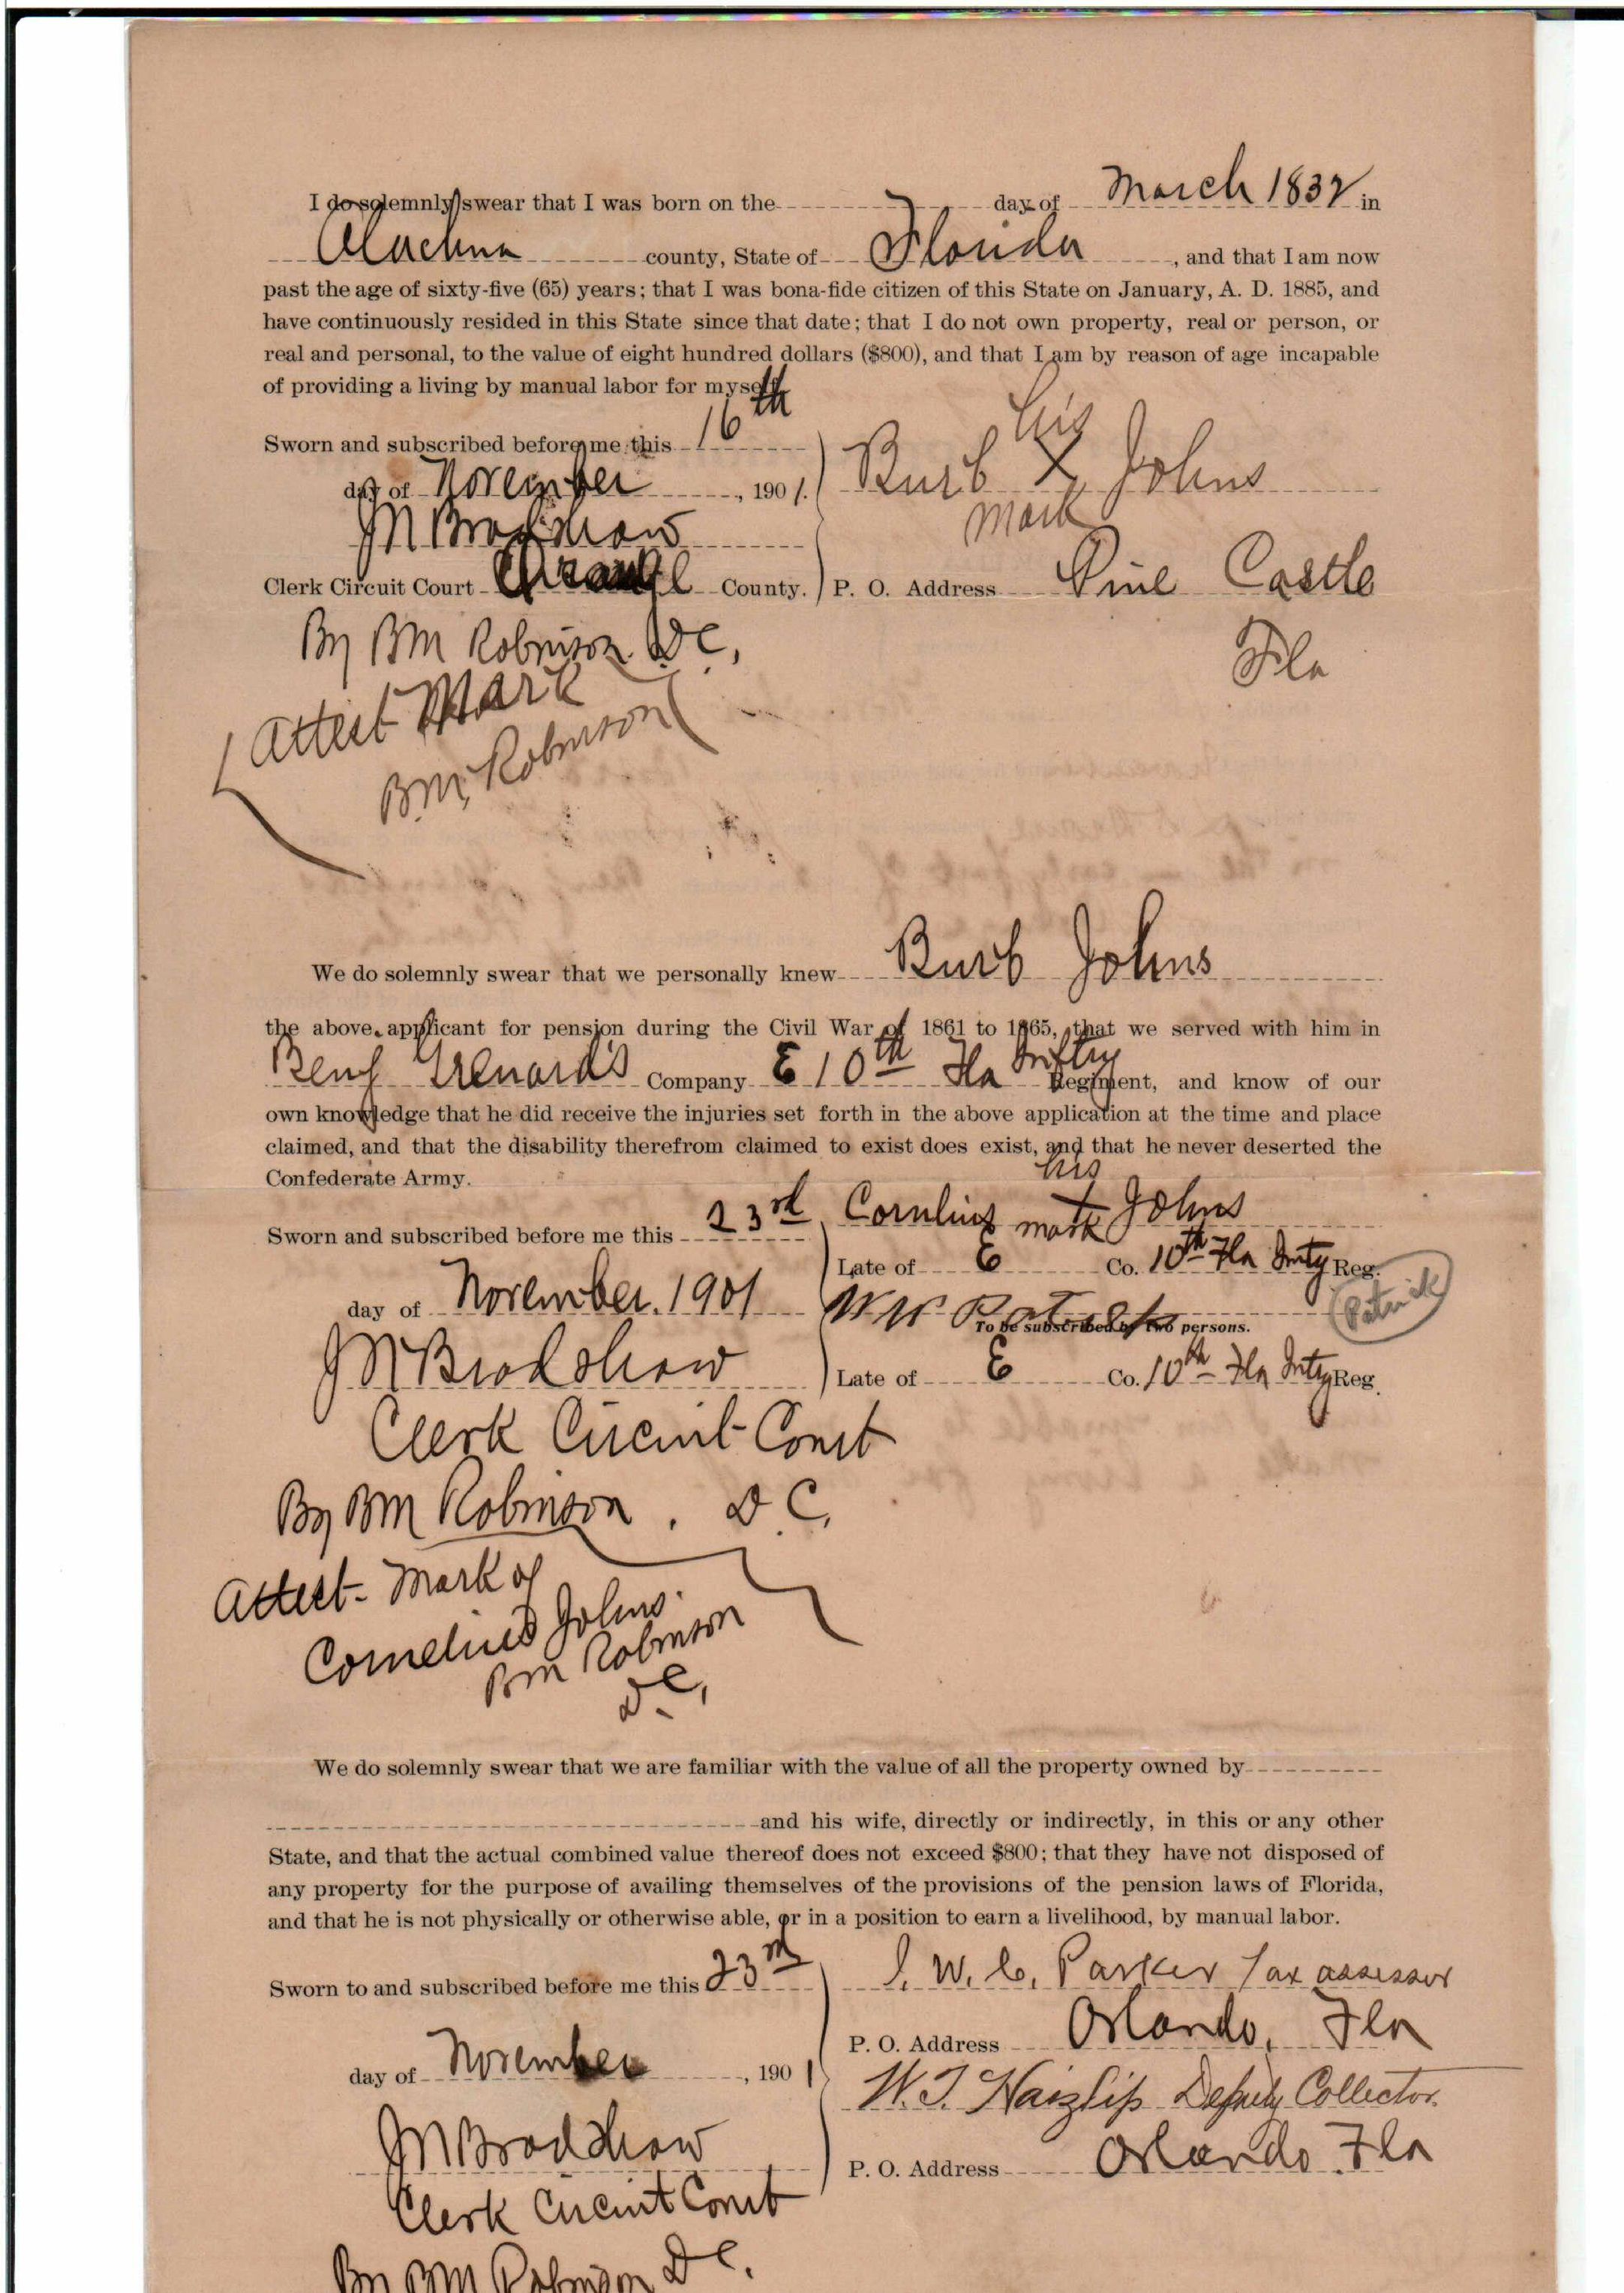 I do solemnly swear that I was born on the day of March 1832 in
Alachua county, State of Florida, and that I am now
past the age of sixty-five (65) years; that I was bona-fide citizen of this State on January, A. D. 1885, and
have continuously resided in this State since that date; that I do not own property, real or person, or
real and personal, to the value of eight hundred dollars ($800), and that I am by reason of age incapable
of providing a living by manual labor for myself.
his
Sworn and subscribed before me this 16th
Burb X Johns
day of November, 1901.
mark
JM Bradshaw
Clerk Circuit Court Orange County.
P. O. Address Pine Castle
Fla
By BM Robinson D C,
Attest Mark
BM, Robinson
We do solemnly swear that we personally knew Burb Johns
the above applicant for pension during the Civil War of 1861 to 1865, that we served with him in
Benj Company E 10th Fla Inftry Regiment, and know of our
own knowledge that he did receive the injuries set forth in the above application at the time and place
claimed, and that the disability therefrom claimed to exist does exist, and that he never deserted the
Confederate Army.
his
Sworn and subscribed before me this 23rd
Cornlius X Johns
mark
Late of E Co. 10th Fla Inty Reg.
day of November. 1901
W W Patrick
(Patrick)
To be subscribed by two persons.
JM Bradshaw
Late of E Co. 10th Fla Inty Reg.
Clerk Circuit Court
By BM Robinson. D. C,
Attest - Mark of
Cornelius Johns.
BM Robinson
D. C,
We do solemnly swear that we are familiar with the value of all the property owned by
and his wife, directly or indirectly, in this or any other
State, and that the actual combined value thereof does not exceed $800; that they have not disposed of
any property for the purpose of availing themselves of the provisions of the pension laws of Florida,
and that he is not physically or otherwise able, or in a position to earn a livelihood, by manual labor.
Sworn to and subscribed before me this 23rd
W. C. Parker Tax assessor
P. O. Address Orlando, Fla
day of November, 1901
W. T. Haizlip Deputy Collector.
JM Bradshaw
P. O. Address Orlando. Fla
Clerk Circuit Court
By BM Robinson D C.